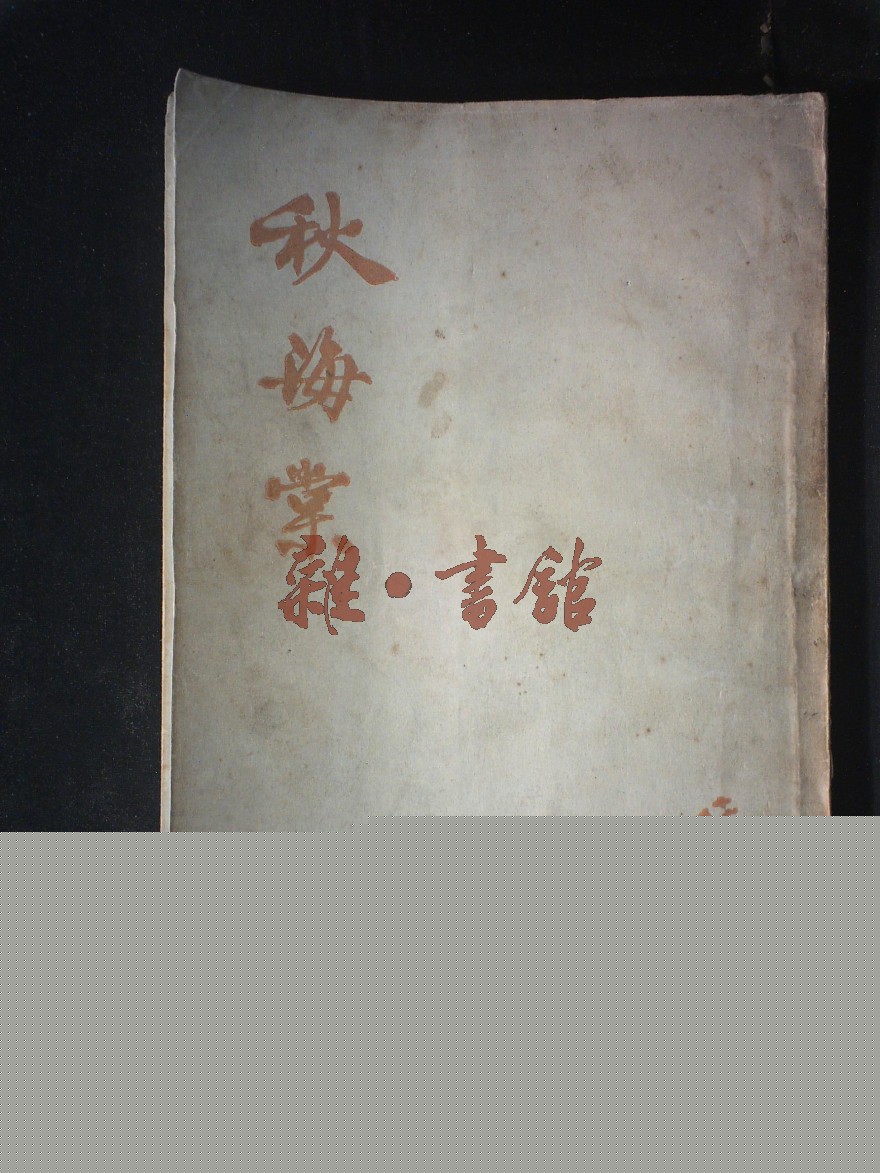 秋海棠
雜·書館